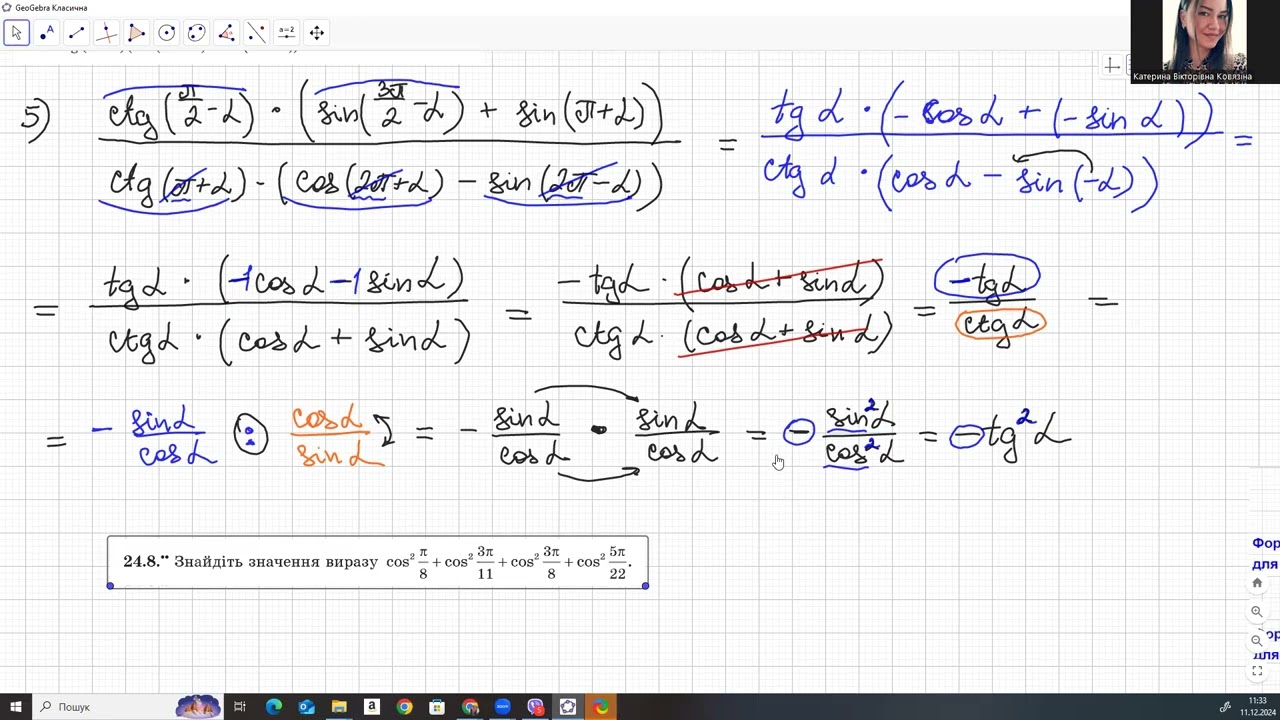 GeoGebra Класична
a=2
Катерина Вікторівна Ковязіна
5) ctg(π/2 - α) · (sin(3π/2 - α) + sin(π+α)) / ctg(π+α) · (cos(2π+α) - sin(2π-α)) = tgα · (-cosα + (-sinα)) / ctgα · (cosα - sin(-α)) =
= tgα · (-1cosα -1sinα) / ctgα · (cosα + sinα) = -tgα · (cosα + sinα) / ctgα · (cosα + sinα) = -tgα / ctgα =
= - sinα/cosα : cosα/sinα = - sinα/cosα · sinα/cosα = - sin²α/cos²α = -tg²α
24.8.•• Знайдіть значення виразу cos² π/8 + cos² 3π/11 + cos² 3π/8 + cos² 5π/22.
Фор
для
для
Пошук
11:33
11.12.2024